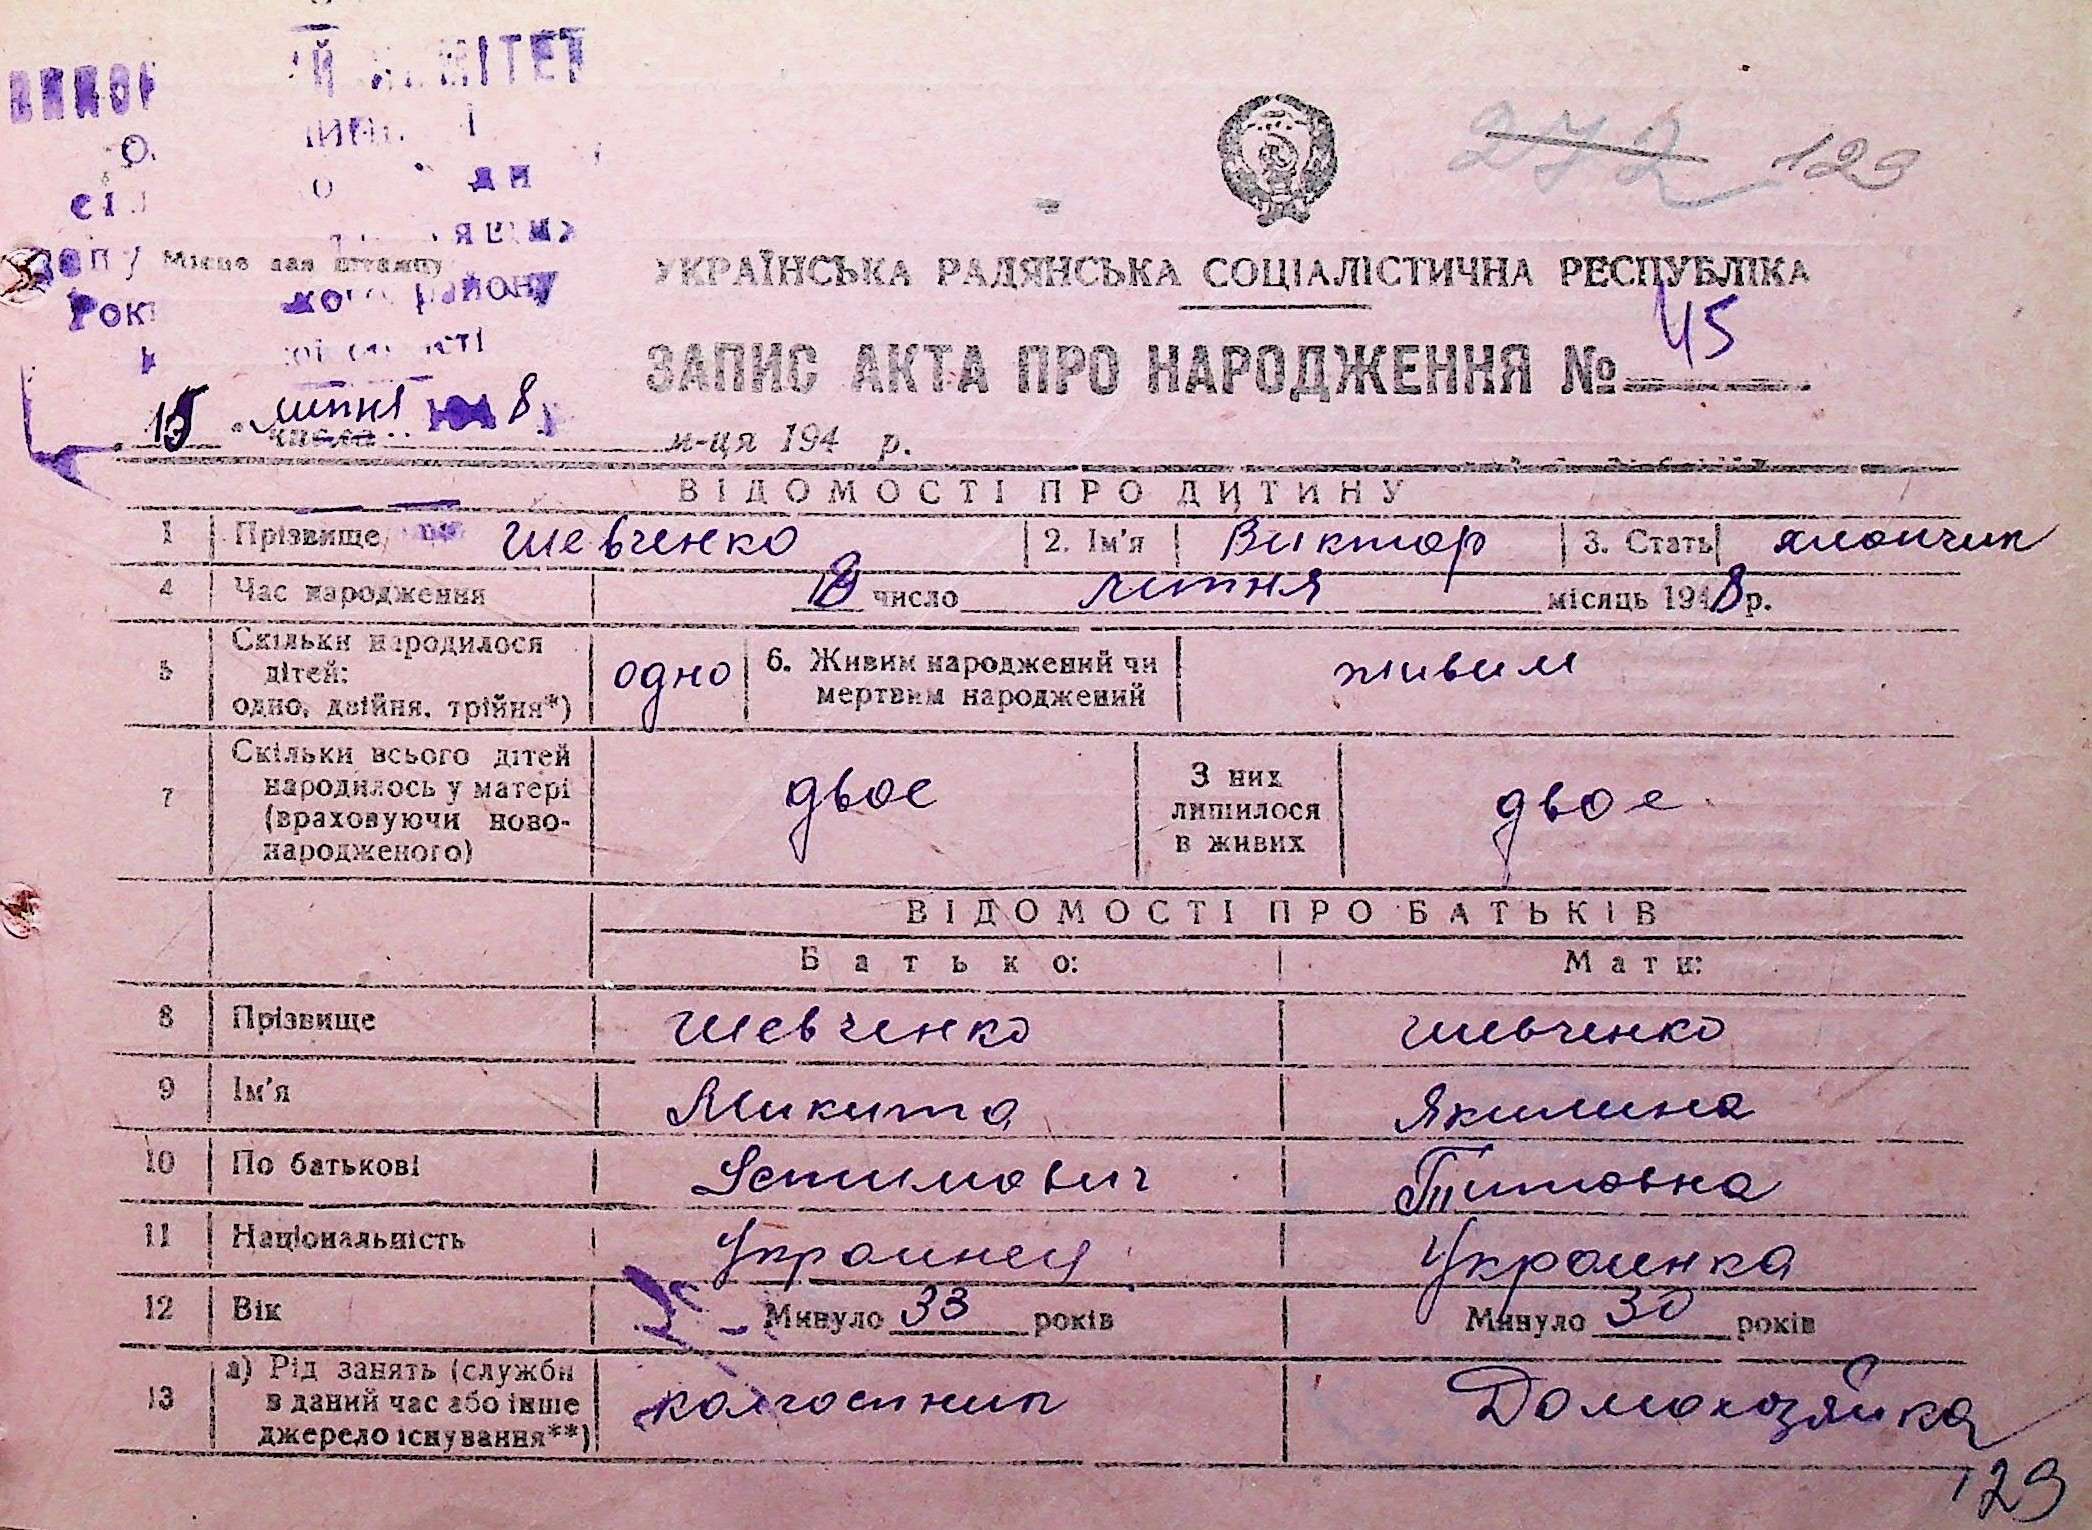 272 129
УКРАЇНСЬКА РАДЯНСЬКА СОЦІАЛІСТИЧНА РЕСПУБЛІКА
Місце для штампу
ЗАПИС АКТА ПРО НАРОДЖЕННЯ № 45
15 липня 8
числа м-ця 194 р.
ВІДОМОСТІ ПРО ДИТИНУ
1 Прізвище Шевченко 2. Ім'я Виктор 3. Стать хлопчик
4 Час народження число липня місяць 1948 р.
5 Скільки народилося дітей: одно, двійня, трійня*) одно 6. Живим народжений чи мертвим народжений живим
7 Скільки всього дітей народилось у матері (враховуючи новонародженого) двое З них лишилося в живих двое
ВІДОМОСТІ ПРО БАТЬКІВ
Батько: Мати:
8 Прізвище Шевченко Шевченко
9 Ім'я Микита Якилина
10 По батькові Устимович Титовна
11 Національність Украинец Украинка
12 Вік Минуло 33 років Минуло 30 років
13 а) Рід занять (служби в даний час або інше джерело існування**) колгоспник Домохозяйка
129